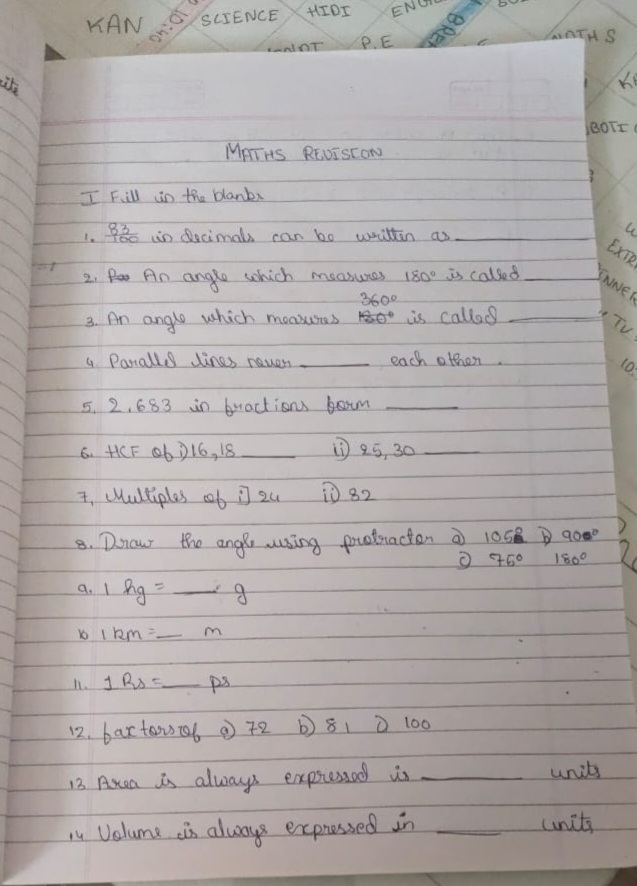 KAN SCIENCE HIDI
P.E
MATHS REVISION
I Fill in the blanks
1. 83/100 in decimals can be written as ______
2. An angle which measures 180° is called ______
360°
3. An angle which measures 180° is called ______
4. Parallel lines never ______ each other.
5. 2.683 in fractions form ______
6. HCF of i) 16,18 ______ ii) 25,30 ______
7. Multiples of i] 24 ii) 32
8. Draw the angle using protractor a) 105° b) 90°
c) 75° 180°
9. 1 kg = ____ g
10 1 km = __ m
11. 1 Rs = ____ ps
12. factors of a) 72 b) 81 c) 100
13 Area is always expressed is ______ units
14 Volume is always expressed in ______ units